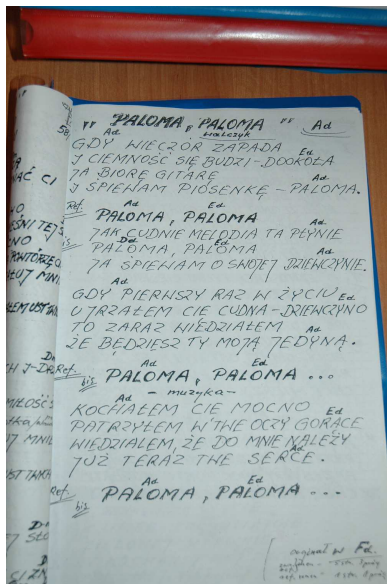 58
"PALOMA, PALOMA" Ad
walczyk
Ad
GDY WIECZÓR ZAPADA
Ed
I CIEMNOŚĆ SIĘ BUDZI - DOOKOŁA
JA BIORĘ GITARĘ
Ad
I ŚPIEWAM PIOSENKĘ - PALOMA.
Ref. Ad Ed
PALOMA, PALOMA
Ad
JAK CUDNIE MELODIA TA PŁYNIE
bis Dd Ed
PALOMA, PALOMA
Ad
JA ŚPIEWAM O SWOJEJ DZIEWCZYNIE.
Ad
GDY PIERWSZY RAZ W ŻYCIU
Ed
UJRZAŁEM CIĘ CUDNA - DZIEWCZYNO
TO ZARAZ WIEDZIAŁEM
Ad
ŻE BĘDZIESZ TY MOJĄ JEDYNĄ.
Ad Ed
Ref. bis PALOMA, PALOMA ...
- muzyka -
Ad
KOCHAŁEM CIE MOCNO
Ed
PATRZYŁEM W TWE OCZY GORĄCE
WIEDZIAŁEM, ŻE DO MNIE NALEŻY
Ad
JUŻ TERAZ TWE SERCE.
Ad Ed
Ref. bis PALOMA, PALOMA ...
oryginał w Fd.